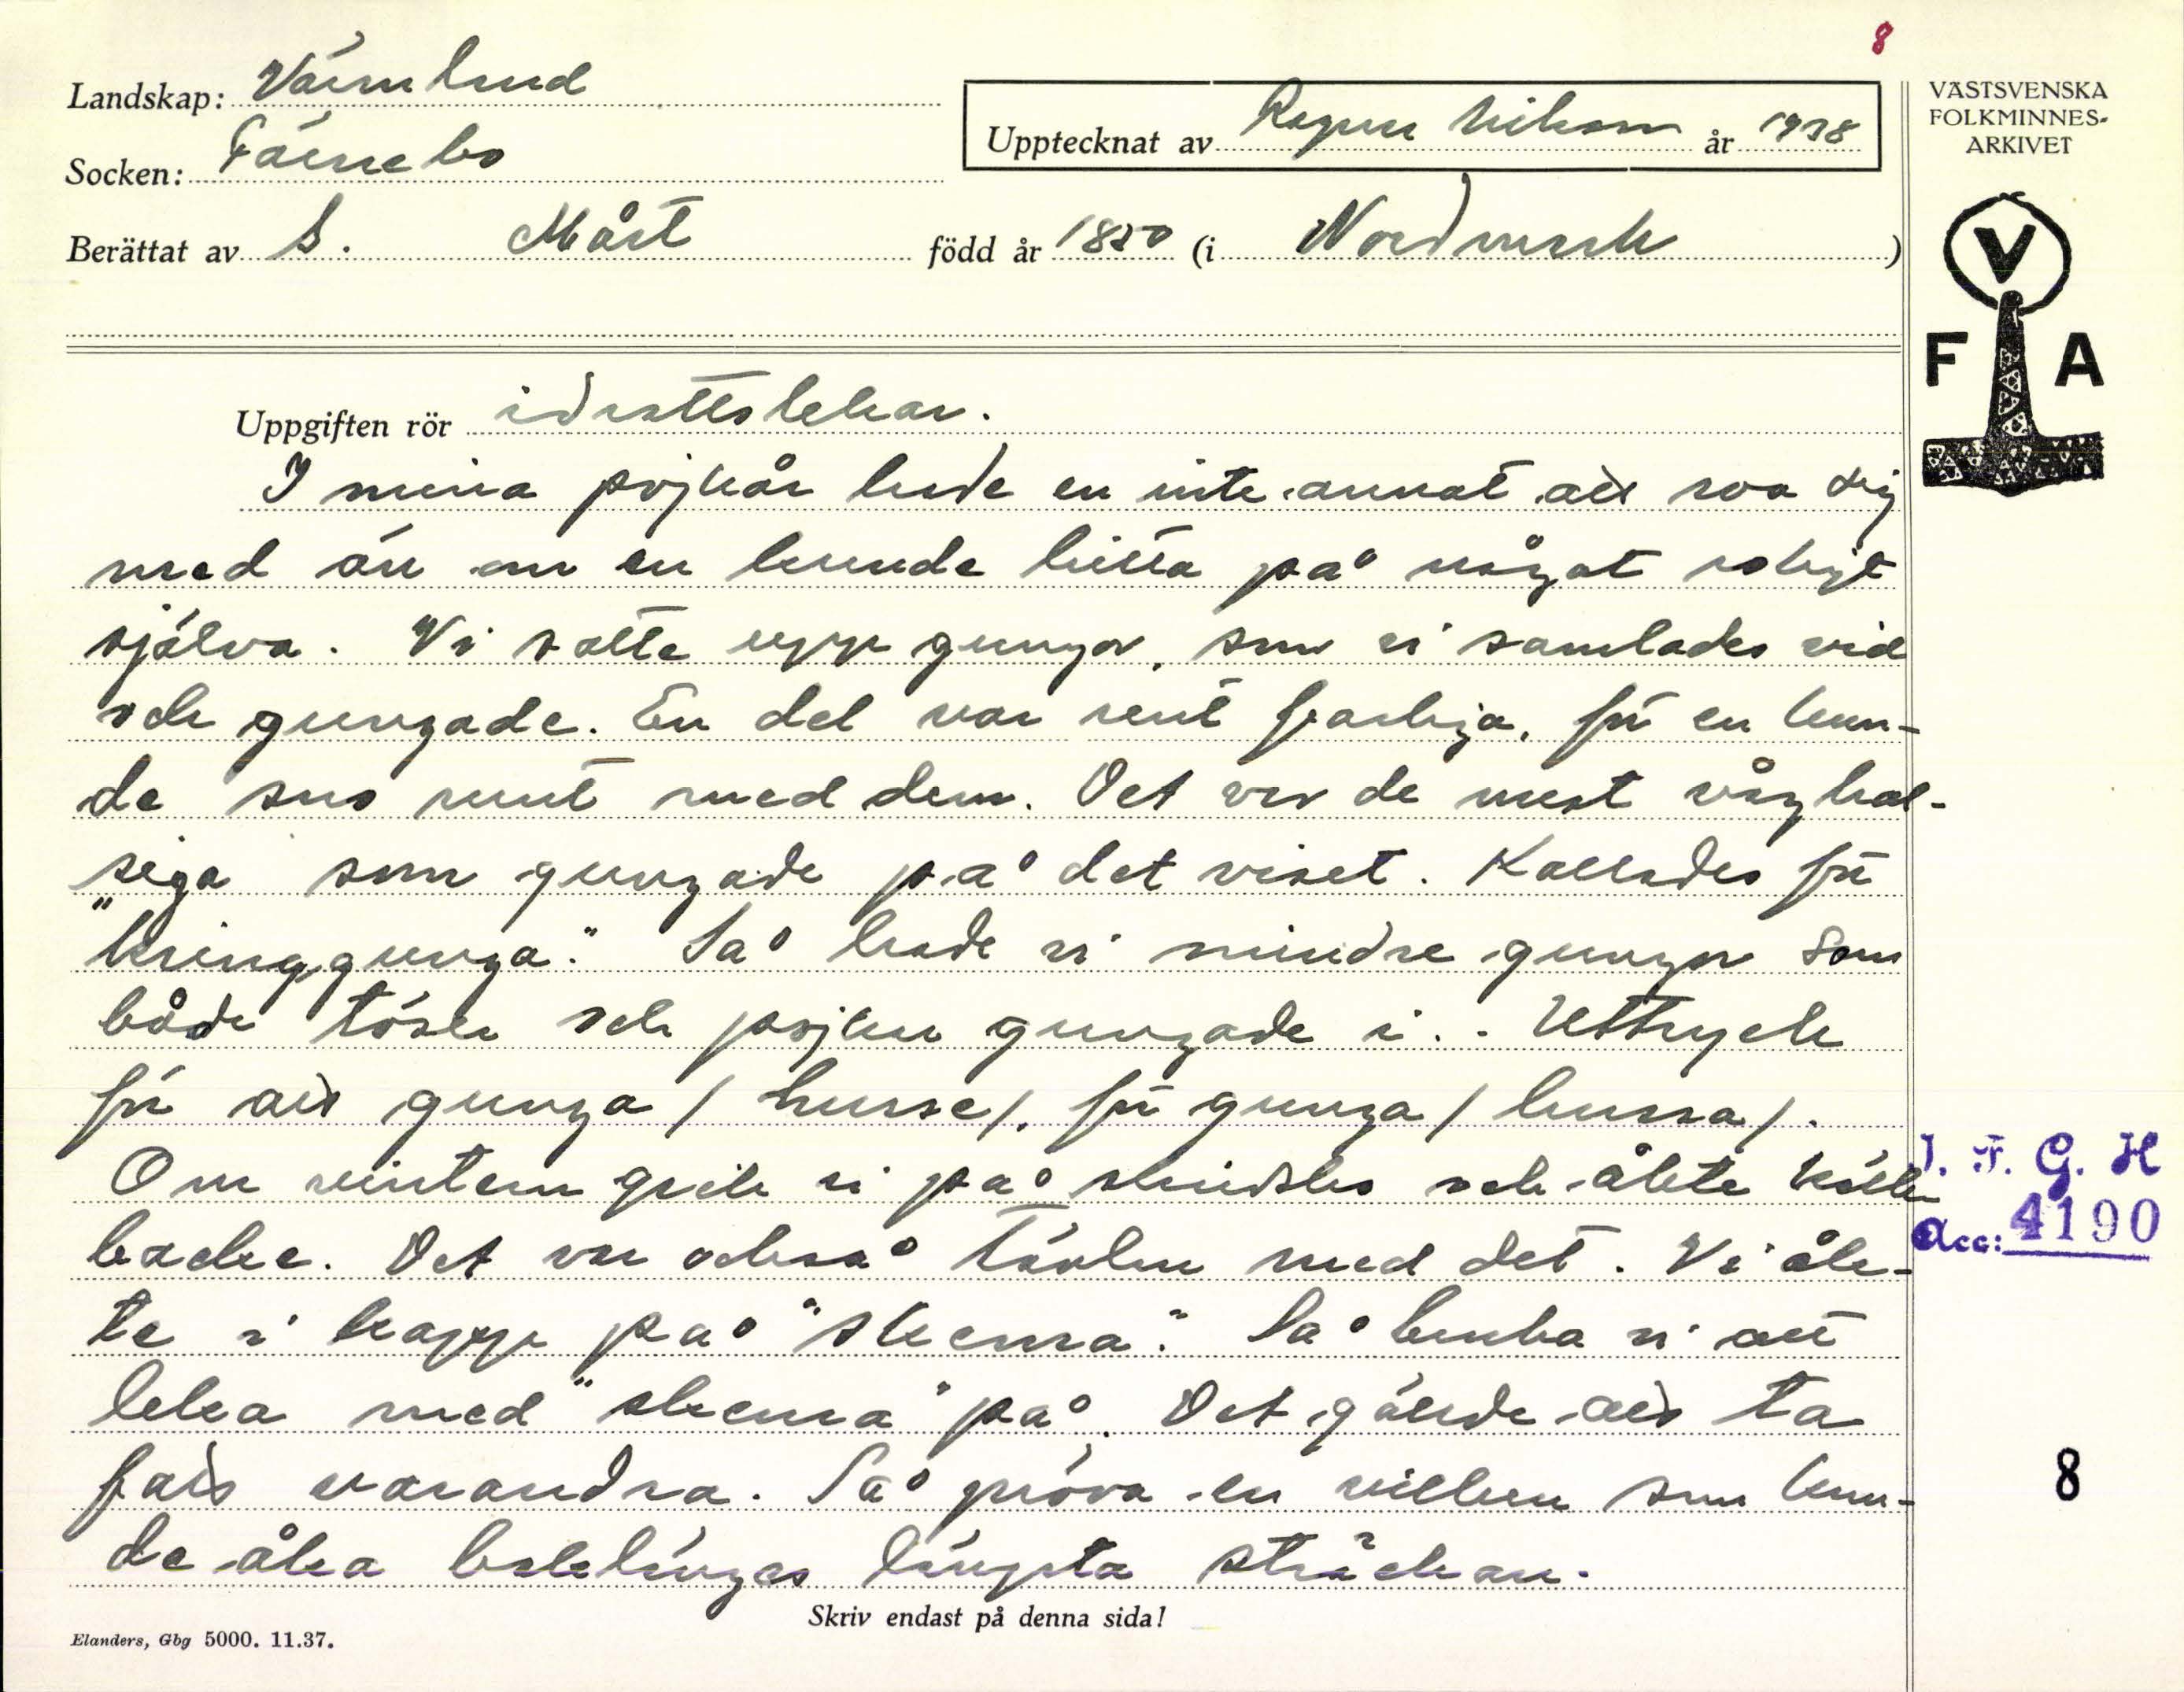 8
Landskap: Värmland
Socken: Färnebo
Upptecknat av Ragnar Nilsson år 1938
Berättat av S. Måst född år 1850 (i Nordmark)
VÄSTSVENSKA
FOLKMINNES-
ARKIVET
V
F A
Uppgiften rör idrottslekar.
I mina pojkår hade en inte annat att roa sig
med än om en kunde hitta på något roligt
själva. Vi satte upp gungor, som vi samlades vid
och gungade. En del var rent farliga, för en kun-
de sno runt med dem. Det var de mest våghal-
siga som gungade på det viset. Kallades för
"kringgunga." Så hade vi mindre gungor som
både töser och pojkar gungade i. - Uttryck
för att gunga / husse/, för gunga / hussa/.
Om vintern gick vi på skidor och åkte
backe. Det var också tävlan med det. Vi åk-
te i kapp på "skenra". Så bruka vi att
leka med "skenra" på. Det gällde att ta
fatt varandra. Så pröva en vilken som kun-
de åka baklänges längsta sträckan.
I. F. G. H
Acc: 4190
8
Skriv endast på denna sida!
Elanders, Gbg 5000. 11.37.